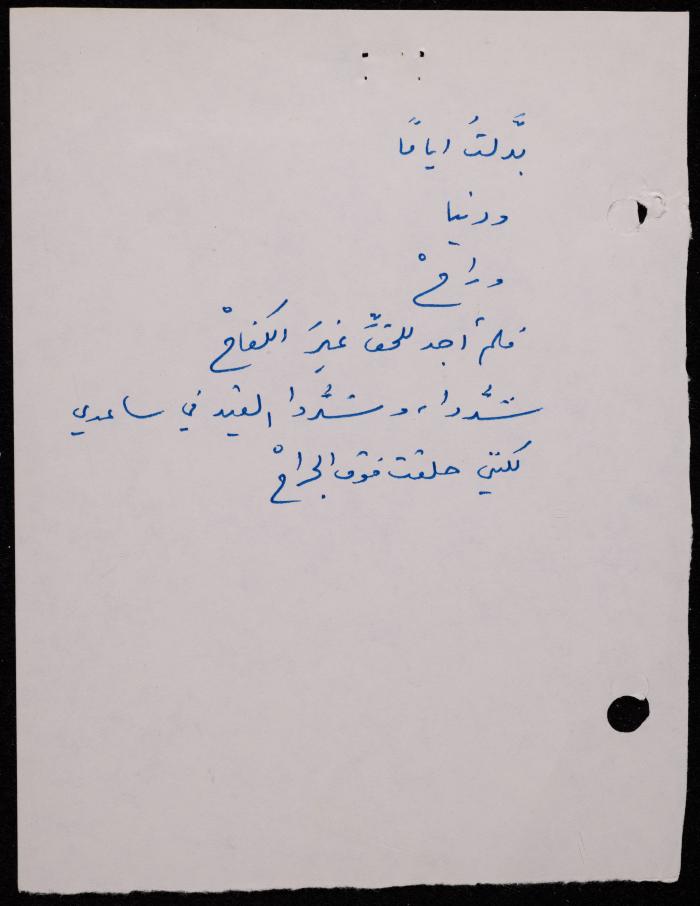 بَدَّلتُ ايامًا
ودنيا
وراحْ
فلمْ أجد للحقِّ غيرَ الكفاحْ
شدُّوا، وشدُّوا القيد في ساعدي
لكنني حلقت فوق الجراحْ